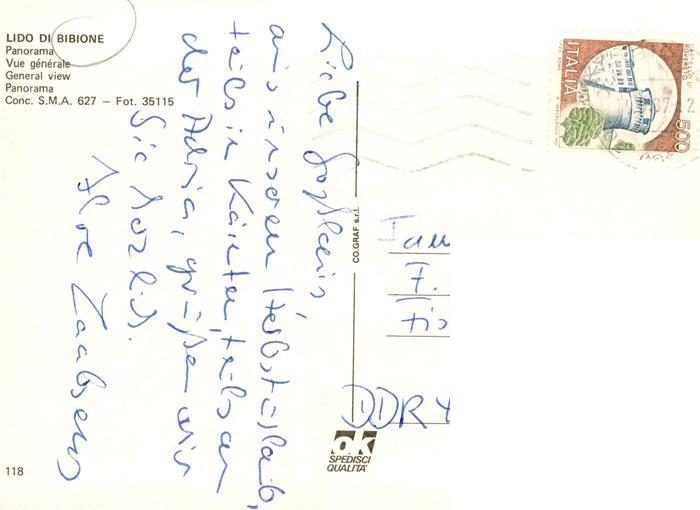 LIDO DI BIBIONE
Panorama
Vue générale
General view
Panorama
Conc. S.M.A. 627 – Fot. 35115
Liebe
aus unserem Herbsturlaub,
teils in Kärnten, teils an
der Adria, grüßen wir
Sie herzlich.
Ihre
CO.GRAF s.r.l.
ITALIA
500
F.
DDR
ok
SPEDISCI
QUALITA'
118